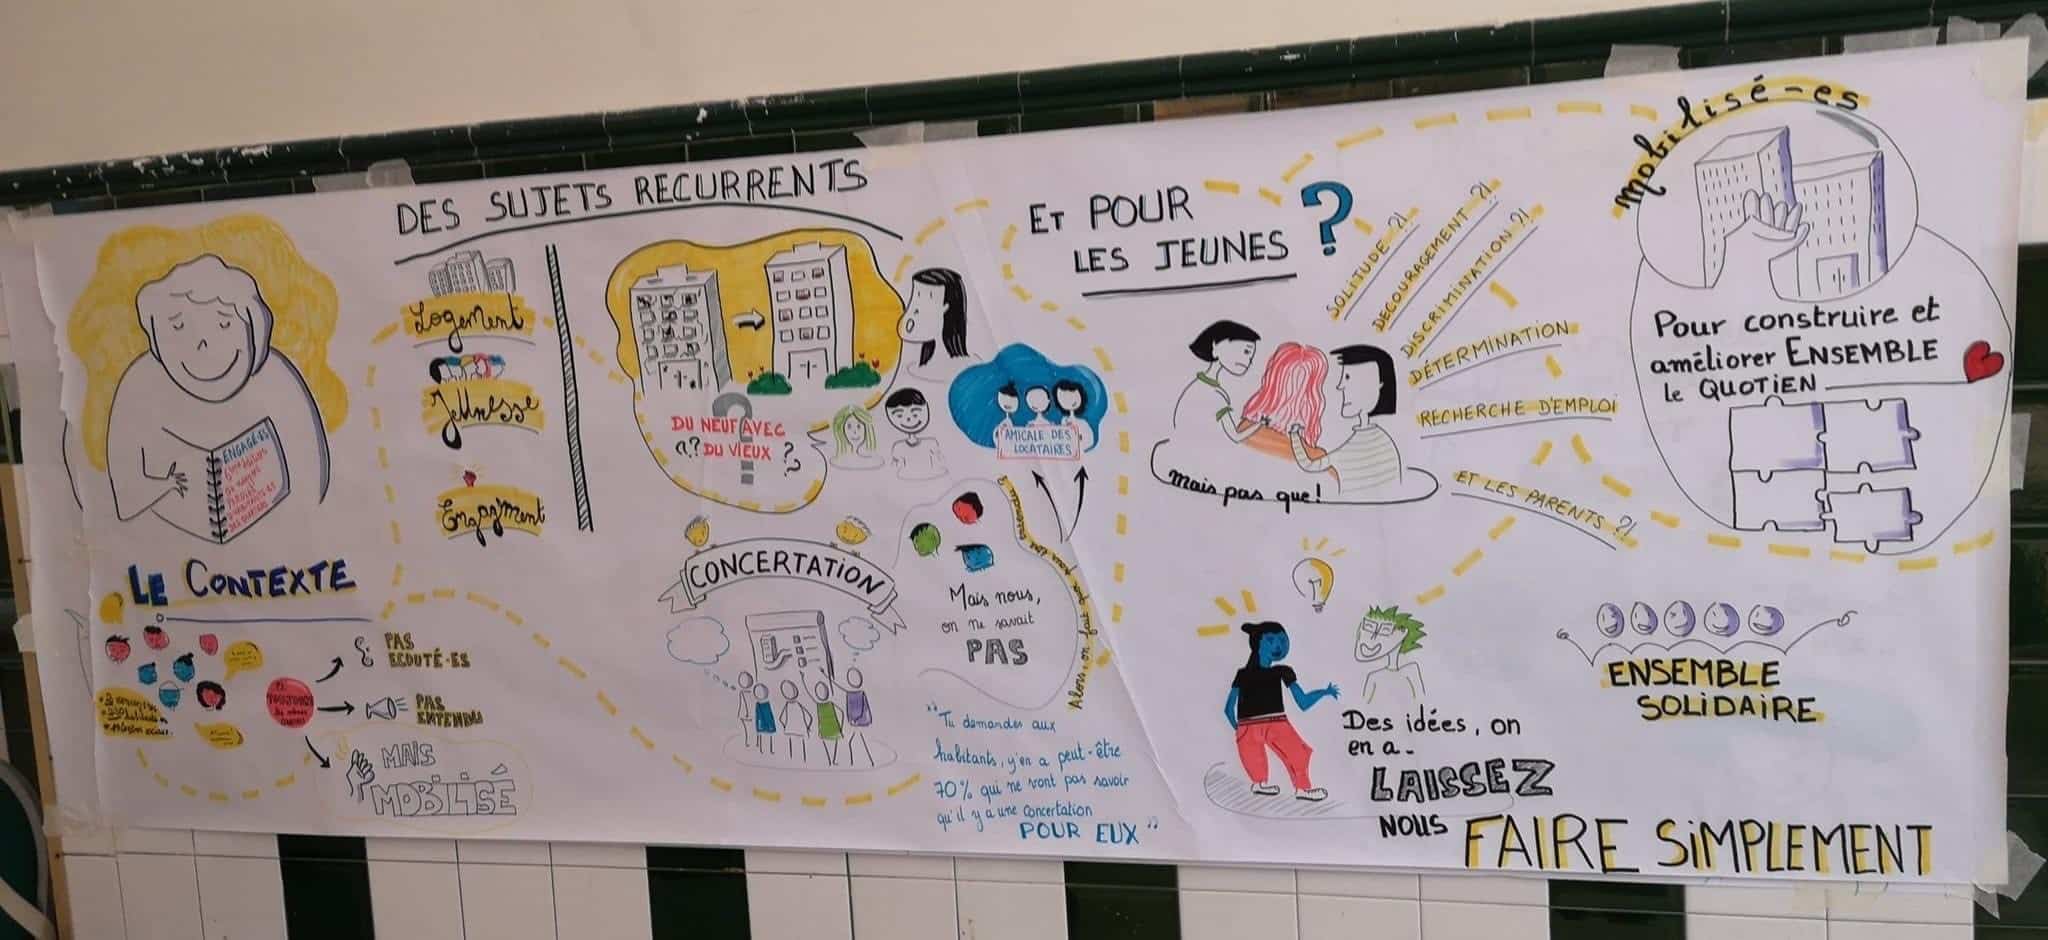 DES SUJETS RECURRENTS
Logement
Jeunesse
Engagement
ENGAGÉ·ES
DES QUARTIERS
LE CONTEXTE
TOUJOURS
PAS
ECOUTÉ·ES
PAS
ENTENDU
MAIS
MOBILISÉ
DU NEUF AVEC
DU VIEUX ?
?
CONCERTATION
AMICALE DES
LOCATAIRES
Mais nous,
on ne savait
PAS
"Tu demandes aux
habitants, y'en a peut-être
70% qui ne vont pas savoir
qu'il y a une concertation
POUR EUX"
ET POUR
LES JEUNES ?
SOLITUDE ?!
DECOURAGEMENT ?!
DISCRIMINATION ?!
DÉTERMINATION
RECHERCHE D'EMPLOI
ET LES PARENTS ?!
mais pas que !
Des idées, on
en a -
LAISSEZ
NOUS FAIRE SIMPLEMENT
mobilisé-es
Pour construire et
améliorer ENSEMBLE
le QUOTIEN
ENSEMBLE
SOLIDAIRE